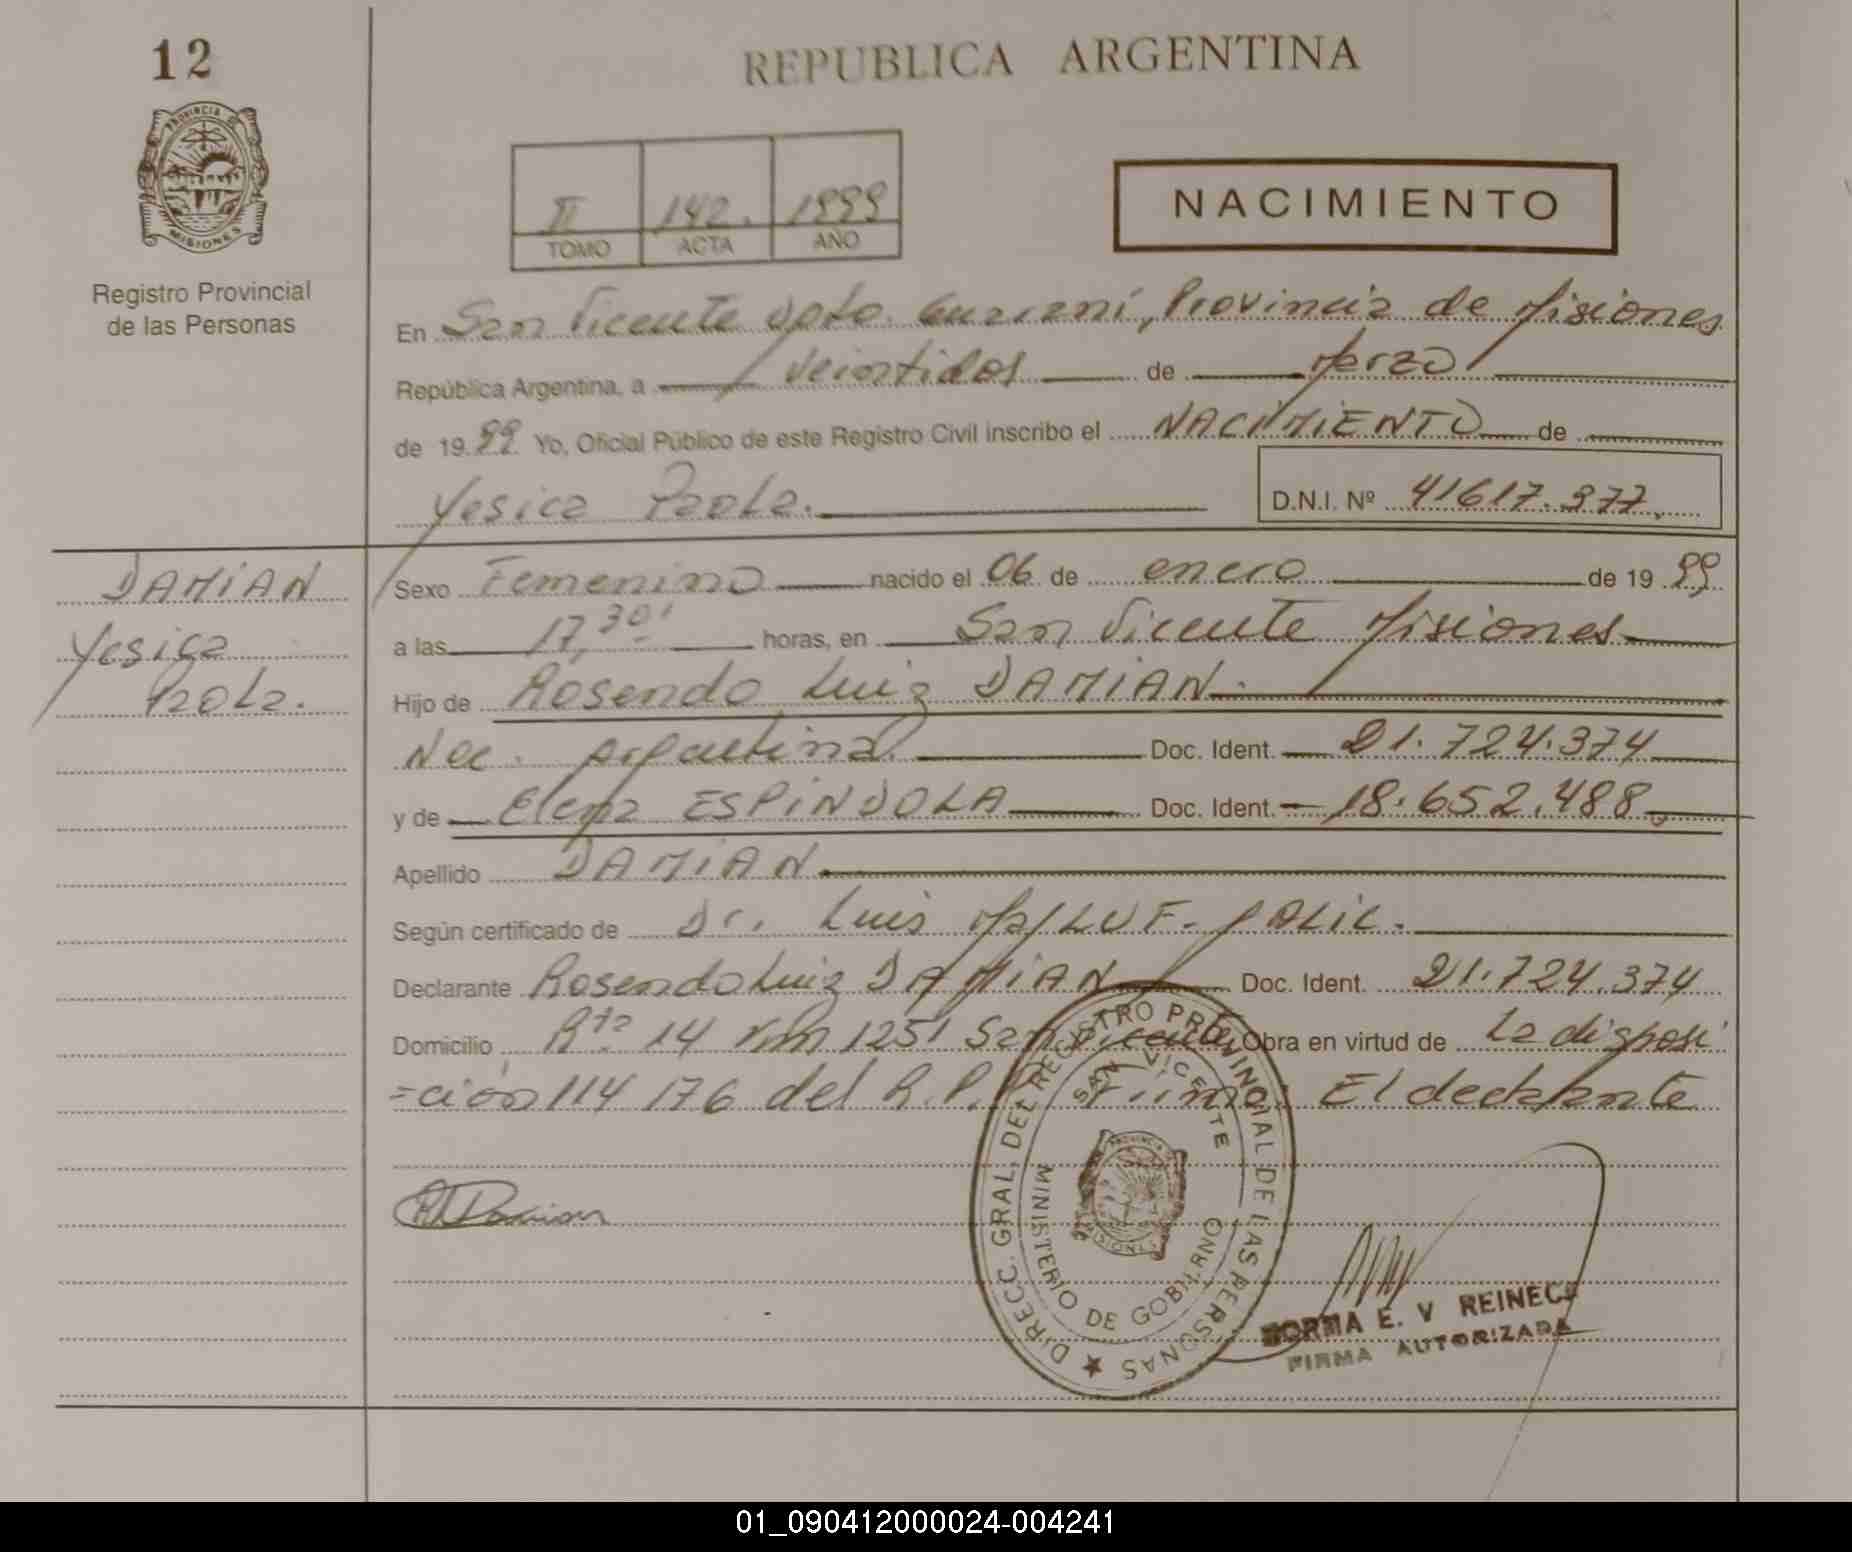 12
REPUBLICA ARGENTINA
PROVINCIA DE
MISIONES
Registro Provincial
de las Personas
II 142. 1999
TOMO ACTA AÑO
NACIMIENTO
En San Vicente Dpto. Guaraní, Provincia de Misiones
República Argentina, a veintidos de Marzo
de 1999 Yo, Oficial Público de este Registro Civil inscribo el NACIMIENTO de
Yesica Paola. D.N.I. Nº 41617.977.
DAMIAN
Yesica
Paola.
Sexo Femenino nacido el 06 de enero de 1999
a las 17,30' horas, en San Vicente Misiones
Hijo de Rosendo Luiz DAMIAN.
Nac. Argentina. Doc. Ident. 21.724.374
y de Elena ESPINDOLA Doc. Ident. 18.652.488
Apellido DAMIAN
Según certificado de Dr. Luis
Declarante Rosendo Luiz DAMIAN Doc. Ident. 21.724.374
Domicilio Rta 14 Km 1251 San Vicente, Obra en virtud de La disposi
=ción 114 176 del R.P.P. Firma: El declarante
DIRECC. GRAL. DEL REGISTRO PROVINCIAL DE LAS PERSONAS
SAN VICENTE
MINISTERIO DE GOBIERNO
PROVINCIA
MISIONES
RL Damian
NORMA E. V REINECK
FIRMA AUTORIZADA
01_090412000024-004241